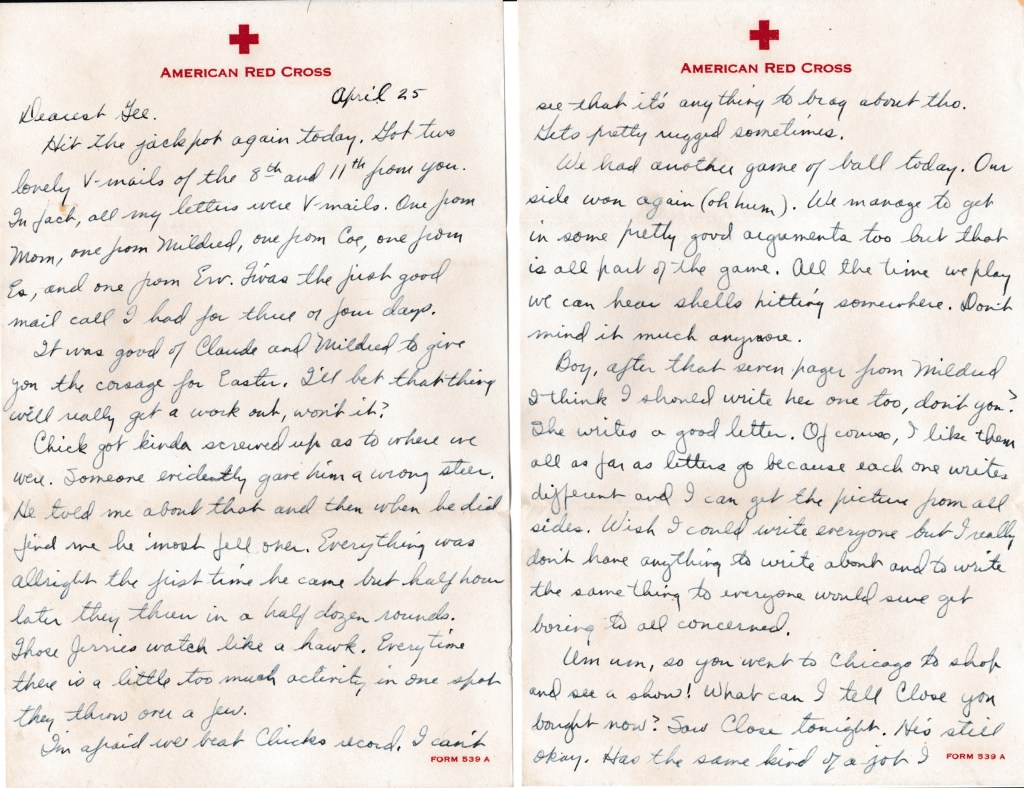 American Red Cross
April 25
Dearest Gee.
Hit the jackpot again today. Got two
lovely V-mails of the 8th and 11th from you.
In fact, all my letters were V-mails. One from
Mom, one from Mildred, one from Coe, one from
Es, and one from Erv. Twas the first good
mail call I had for three or four days.
It was good of Claude and Mildred to give
you the corsage for Easter. I'll bet that thing
will really get a work out, won't it?
Chick got kinda screwed up as to where we
were. Someone evidently gave him a wrong steer.
He told me about that and then when he did
find me he 'most fell over. Everything was
allright the first time he came but half hour
later they threw in a half dozen rounds.
Those Jerries watch like a hawk. Everytime
there is a little too much activity in one spot
they throw over a few.
I'm afraid we beat Chicks record. I can't
FORM 539 A
American Red Cross
see that it's anything to brag about tho.
Gets pretty rugged sometimes.
We had another game of ball today. Our
side won again (oh hum). We manage to get
in some pretty good arguments too but that
is all part of the game. All the time we play
we can hear shells hitting somewhere. Don't
mind it much anymore.
Boy, after that seven pager from Mildred
I think I should write her one too, don't you?
She writes a good letter. Of course, I like them
all as far as letters go because each one writes
different and I can get the picture from all
sides. Wish I could write everyone but I really
don't have anything to write about and to write
the same thing to everyone would sure get
boring to all concerned.
Um um, so you went to Chicago to shop
and see a show! What can I tell Close you
bought now? Saw Close tonight. He's still
okay. Has the same kind of a job I
FORM 539 A